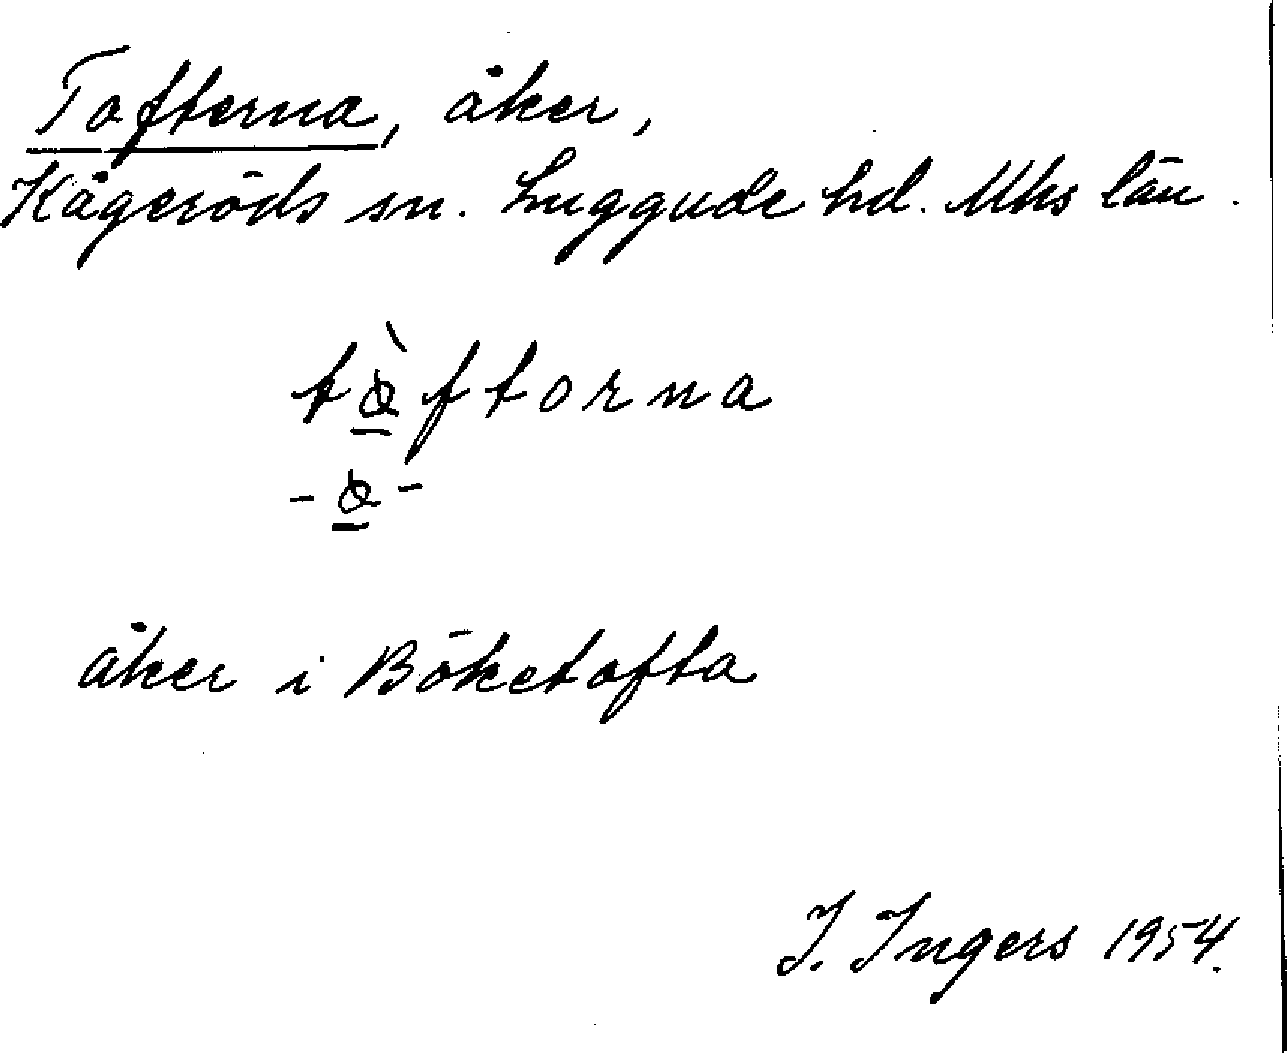 Tofterna, åker,
Kågeröds sn. Luggude hd. Mhs län.
tòftorna
-o-
åker i Böketofta
I. Ingers 1954.